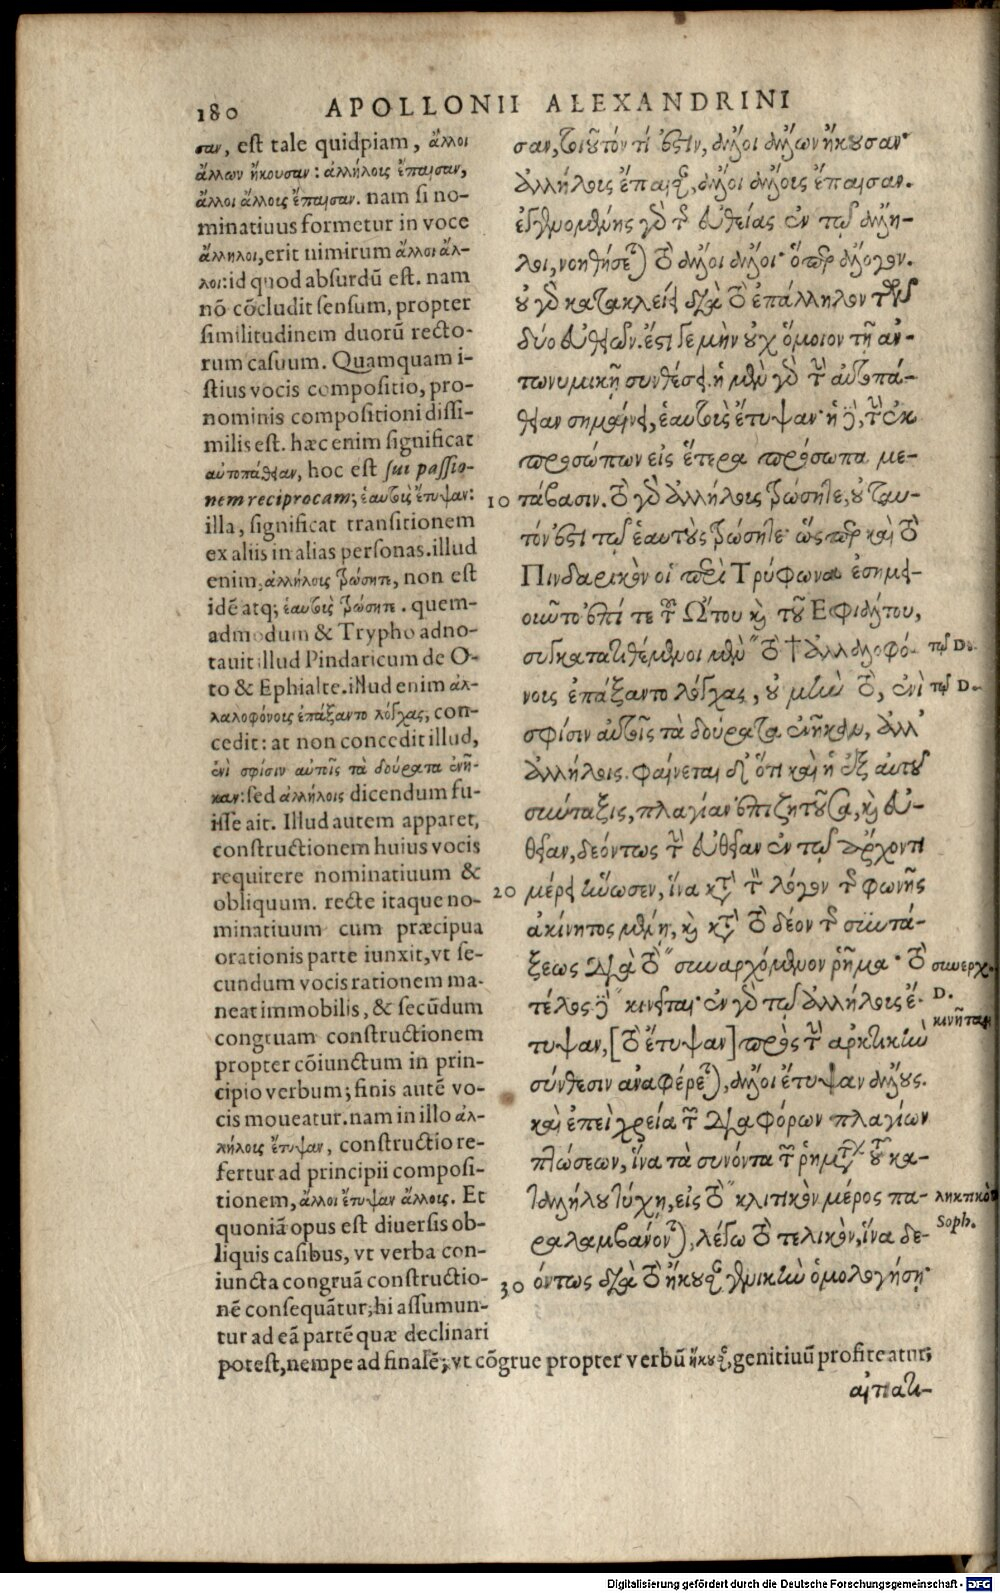 180 APOLLONII ALEXANDRINI
σαν, est tale quidpiam, ἄλλοι
ἄλλων ἤκουσαν: ἀλλήλοις ἔπαισαν,
ἄλλοι ἄλλοις ἔπαισαν. nam si no-
minatiuus formetur in voce
ἄλληλοι, erit nimirum ἄλλοι ἄλ-
λοι: id quod absurdū est. nam
nō cōcludit sensum, propter
similitudinem duorū recto-
rum casuum. Quamquam i-
stius vocis compositio, pro-
nominis compositioni dissi-
milis est. hæc enim significat
αὐτοπάθειαν, hoc est sui passio-
nem reciprocam; ἑαυτοὺς ἔτυψαν:
illa, significat transitionem
ex aliis in alias personas. illud
enim, ἀλλήλοις ζώσητε, non est
idē atq; ἑαυτοῖς ζώσητε. quem-
admodum & Trypho adno-
tauit illud Pindaricum de O-
to & Ephialte. illud enim ἀλ-
λαλοφόνοις ἐπάξαντο λόγχας, con-
cedit: at non concedit illud,
ἐνὶ σφίσιν αὐτοῖς τὰ δούρατα ἐνῆ-
καν: sed ἀλλήλοις dicendum fu-
isse ait. Illud autem apparet,
constructionem huius vocis
requirere nominatiuum &
obliquum. recte itaque no-
minatiuum cum præcipua
orationis parte iunxit, vt se-
cundum vocis rationem ma-
neat immobilis, & secūdum
congruam constructionem
propter cōiunctum in prin-
cipio verbum; finis autē vo-
cis moueatur. nam in illo ἀλ-
λήλοις ἔτυψαν, constructio re-
fertur ad principii composi-
tionem, ἄλλοι ἔτυψαν ἄλλοις. Et
quoniā opus est diuersis ob-
liquis casibus, vt verba con-
iuncta congruā constructio-
nē consequātur; hi assumun-
tur ad eā partē quæ declinari
potest, nempe ad finalē; vt cōgrue propter verbū ἤκουσαν, genitiuū profiteatur;
σαν, τοιοῦτόν τί ἐστιν, ἄλλοι ἄλλων ἤκουσαν·
ἀλλήλοις ἔπαισαν, ἄλλοι ἄλλοις ἔπαισαν.
γὰρ τῆς εὐθείας ἐν τῷ ἄλλη-
λοι, νοηθήσεται τὸ ἄλλοι ἄλλοι· ὅπερ ἄλογον.
οὐ γὰρ κατακλείει διὰ τὸ ἐπάλληλον τῶν
δύο εὐθειῶν. ἔστι δὲ μὴν οὐχ ὅμοιον τῇ ἀν-
τωνυμικῇ συνθέσει. ἡ μὲν γὰρ τὴν αὐτοπά-
θειαν σημαίνει, ἑαυτοὺς ἔτυψαν· ἡ δὲ, τὴν ἐκ
προσώπων εἰς ἕτερα πρόσωπα με-
10 τάβασιν. τὸ γὰρ ἀλλήλοις ζώσητε, οὐ ταυ-
τόν ἐστι τῷ ἑαυτοὺς ζώσητε· ὥσπερ καὶ τὸ
Πινδαρικὸν οἱ περὶ Τρύφωνα ἐσημει-
οῦντο ἐπί τε τοῦ Ὤτου καὶ τοῦ Ἐφιάλτου,
συγκατατιθέμενοι μὲν " τὸ † ἀλλαλοφό-
νοις ἐπάξαντο λόγχας, οὐ μὴν τὸ, ἐνὶ
σφίσιν αὐτοῖς τὰ δούρατα ἐνῆκαν, ἀλλ'
ἀλλήλοις. φαίνεται δὲ ὅτι καὶ ἡ ἐξ αὐτοῦ
σύνταξις, πλαγίαν ἐπιζητοῦσα, καὶ εὐ-
θεῖαν, δεόντως τὴν εὐθεῖαν ἐν τῷ ἄρχοντι
20 μέρει ἥνωσεν, ἵνα κατὰ τὸν λόγον τῆς φωνῆς
ἀκίνητος μένῃ, καὶ κατὰ τὸ δέον τῆς συντά-
ξεως διὰ τὸ " συναρχόμενον ῥῆμα· τὸ
τέλος δὲ " κινεῖται· ἐν γὰρ τῷ ἀλλήλοις ἔ-
τυψαν, [τὸ ἔτυψαν] πρὸς τὴν ἀρκτικὴν
σύνθεσιν ἀναφέρεται, ἄλλοι ἔτυψαν ἄλλους.
καὶ ἐπεὶ χρεία τῶν διαφόρων πλαγίων
πτώσεων, ἵνα τὰ συνόντα τῶν ῥημάτων τοῦ κα-
ταλλήλου τύχῃ, εἰς τὸ " κλιτικὸν μέρος πα-
ραλαμβάνονται, λέγω τὸ τελικὸν, ἵνα δε-
30 όντως διὰ τὸ ἤκουσαν γενικὴν ὁμολογήσῃ·
τῷ D.
τῷ D.
συνερχ.
D.
κινῆται
ληκτικὸν
Soph.
αἰτιατι-
Digitalisierung gefördert durch die Deutsche Forschungsgemeinschaft - DFG